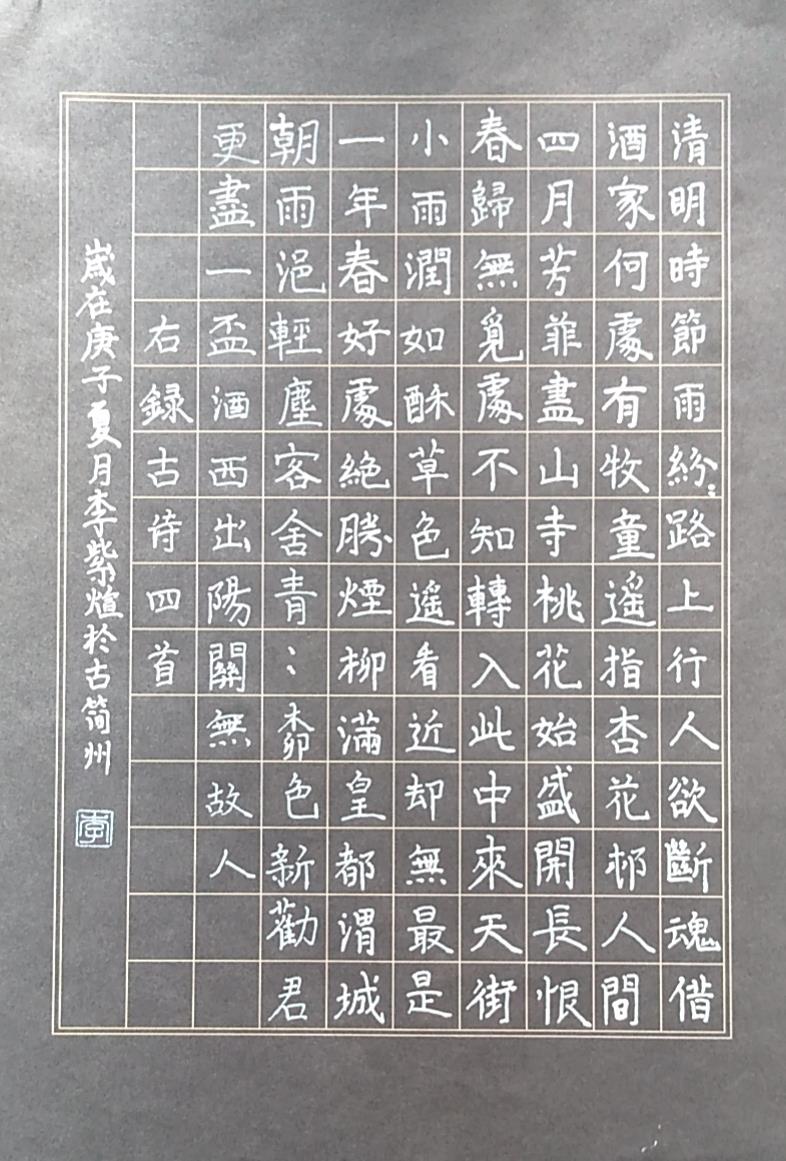 清明時節雨紛〻路上行人欲斷魂借
酒家何處有牧童遥指杏花邨人間
四月芳菲盡山寺桃花始盛開長恨
春歸無覓處不知轉入此中來天街
小雨潤如酥草色遥看近却無最是
一年春好處絶勝煙柳滿皇都渭城
朝雨浥輕塵客舍青〻桺色新勸君
更盡一盃酒西出陽關無故人
右録古詩四首
嵗在庚子夏月李紫煊於古简州
李